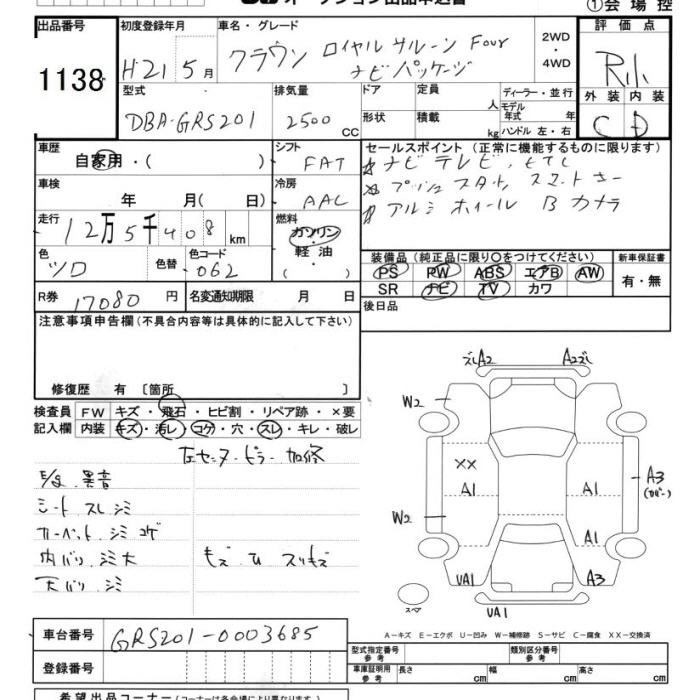 オークション出品申込書
①会場控
出品番号 初度登録年月 車名・グレード 評価点
1138 H21 5月 クラウン ロイヤルサルーン Four
ナビパッケージ
2WD・4WD
R小
型式 排気量 ドア 定員 人 ディーラー・並行
モデル年式 年
DBA-GRS201 2500 CC 形状 積載 kg ハンドル 左・右
外装 内装
C D
車歴 シフト セールスポイント(正常に機能するものに限ります)
自家用・( ) FAT ナビ テレビ、ETC
車検 年 月( 日) 冷房 AAC プッシュスタート スマートキー
アルミホイール Bカメラ
走行 12万5千408km 燃料 ガソリン・軽油・( )
色 クロ 色替 色コード 062
装備品(純正品に限り○をつけてください) 新車保証書
PS PW ABS エアB AW 有・無
SR ナビ TV カワ
R券 17080円 名変通知期限 月 日 後日品
注意事項申告欄(不具合内容等は具体的に記入して下さい)
修復歴 有 〔箇所
検査員 FW キズ・飛石・ヒビ割・リペア跡・×要
記入欄 内装 キズ・汚レ・コゲ・穴・スレ・キレ・破レ
左センターピラー 加修
E/g 異音
シート スレ シミ
カーペット シミ コゲ
内バリ シミ大
天バリ シミ
キズ スリキズ
ズレA2 A2ズレ
W2
XX A3
A1 A1 (カバー)
W2
A1
UA1 A3
スペア UA1
A-キズ E-エクボ U-凹み W-補修跡 S-サビ C-腐食 XX-交換済
車台番号 GRS201-0003685
登録番号
型式指定番号 参考 類別区分番号 参考
車庫証明用 参考 長さ cm 幅 cm 高さ cm
希望出品コーナー(コーナーは各会場により異なります)